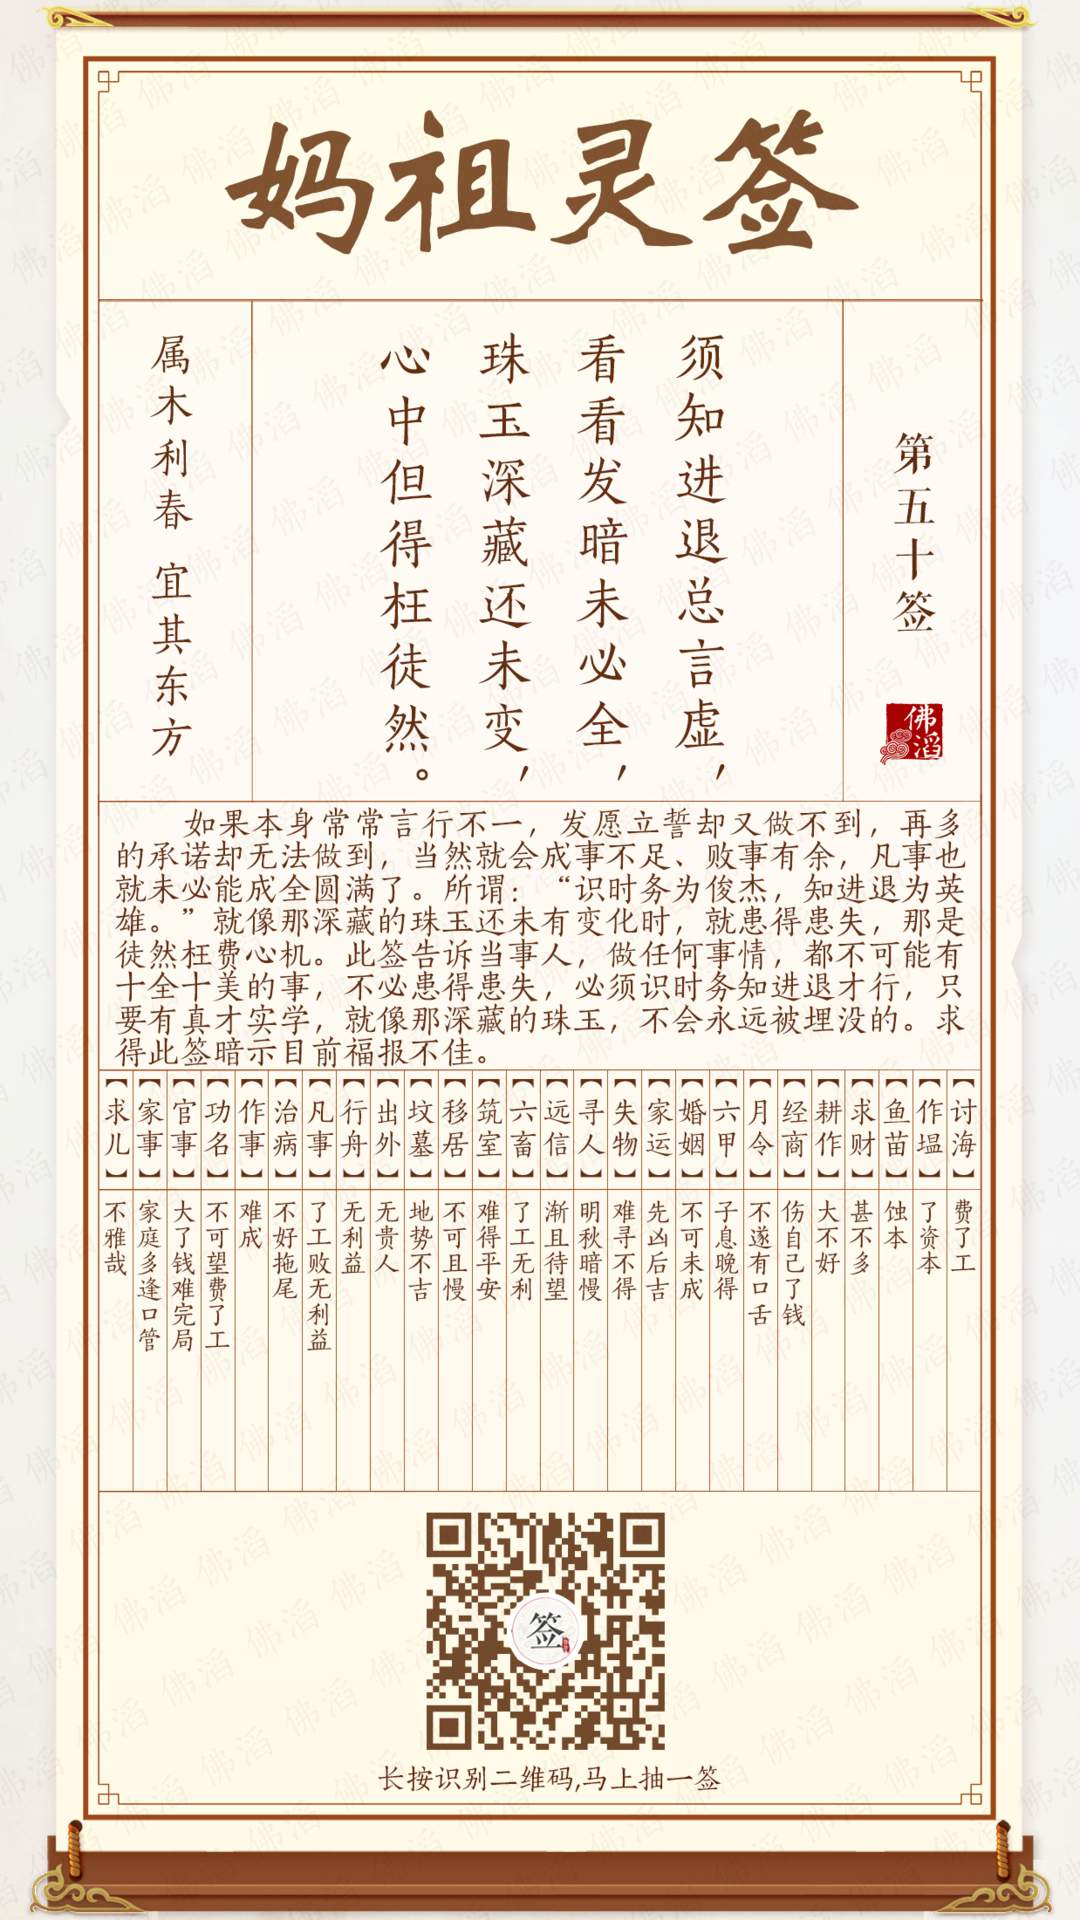 妈祖灵签
第五十签
佛滔
须知进退总言虚，
看看发暗未必全，
珠玉深藏还未变，
心中但得枉徒然。
属木利春 宜其东方
如果本身常常言行不一，发愿立誓却又做不到，再多
的承诺却无法做到，当然就会成事不足、败事有余，凡事也
就未必能成全圆满了。所谓：“识时务为俊杰，知进退为英
雄。”就像那深藏的珠玉还未有变化时，就患得患失，那是
徒然枉费心机。此签告诉当事人，做任何事情，都不可能有
十全十美的事，不必患得患失，必须识时务知进退才行，只
要有真才实学，就像那深藏的珠玉，不会永远被埋没的。求
得此签暗示目前福报不佳。
【讨海】费了工
【作塭】了资本
【鱼苗】蚀本
【求财】甚不多
【耕作】大不好
【经商】伤自己了钱
【月令】不遂有口舌
【六甲】子息晚得
【婚姻】不可未成
【家运】先凶后吉
【失物】难寻不得
【寻人】明秋暗慢
【远信】渐且待望
【六畜】了工无利
【筑室】难得平安
【移居】不可且慢
【坟墓】地势不吉
【出外】无贵人
【行舟】无利益
【凡事】了工败无利益
【治病】不好拖尾
【作事】难成
【功名】不可望费了工
【官事】大了钱难完局
【家事】家庭多逢口管
【求儿】不雅哉
签
长按识别二维码,马上抽一签